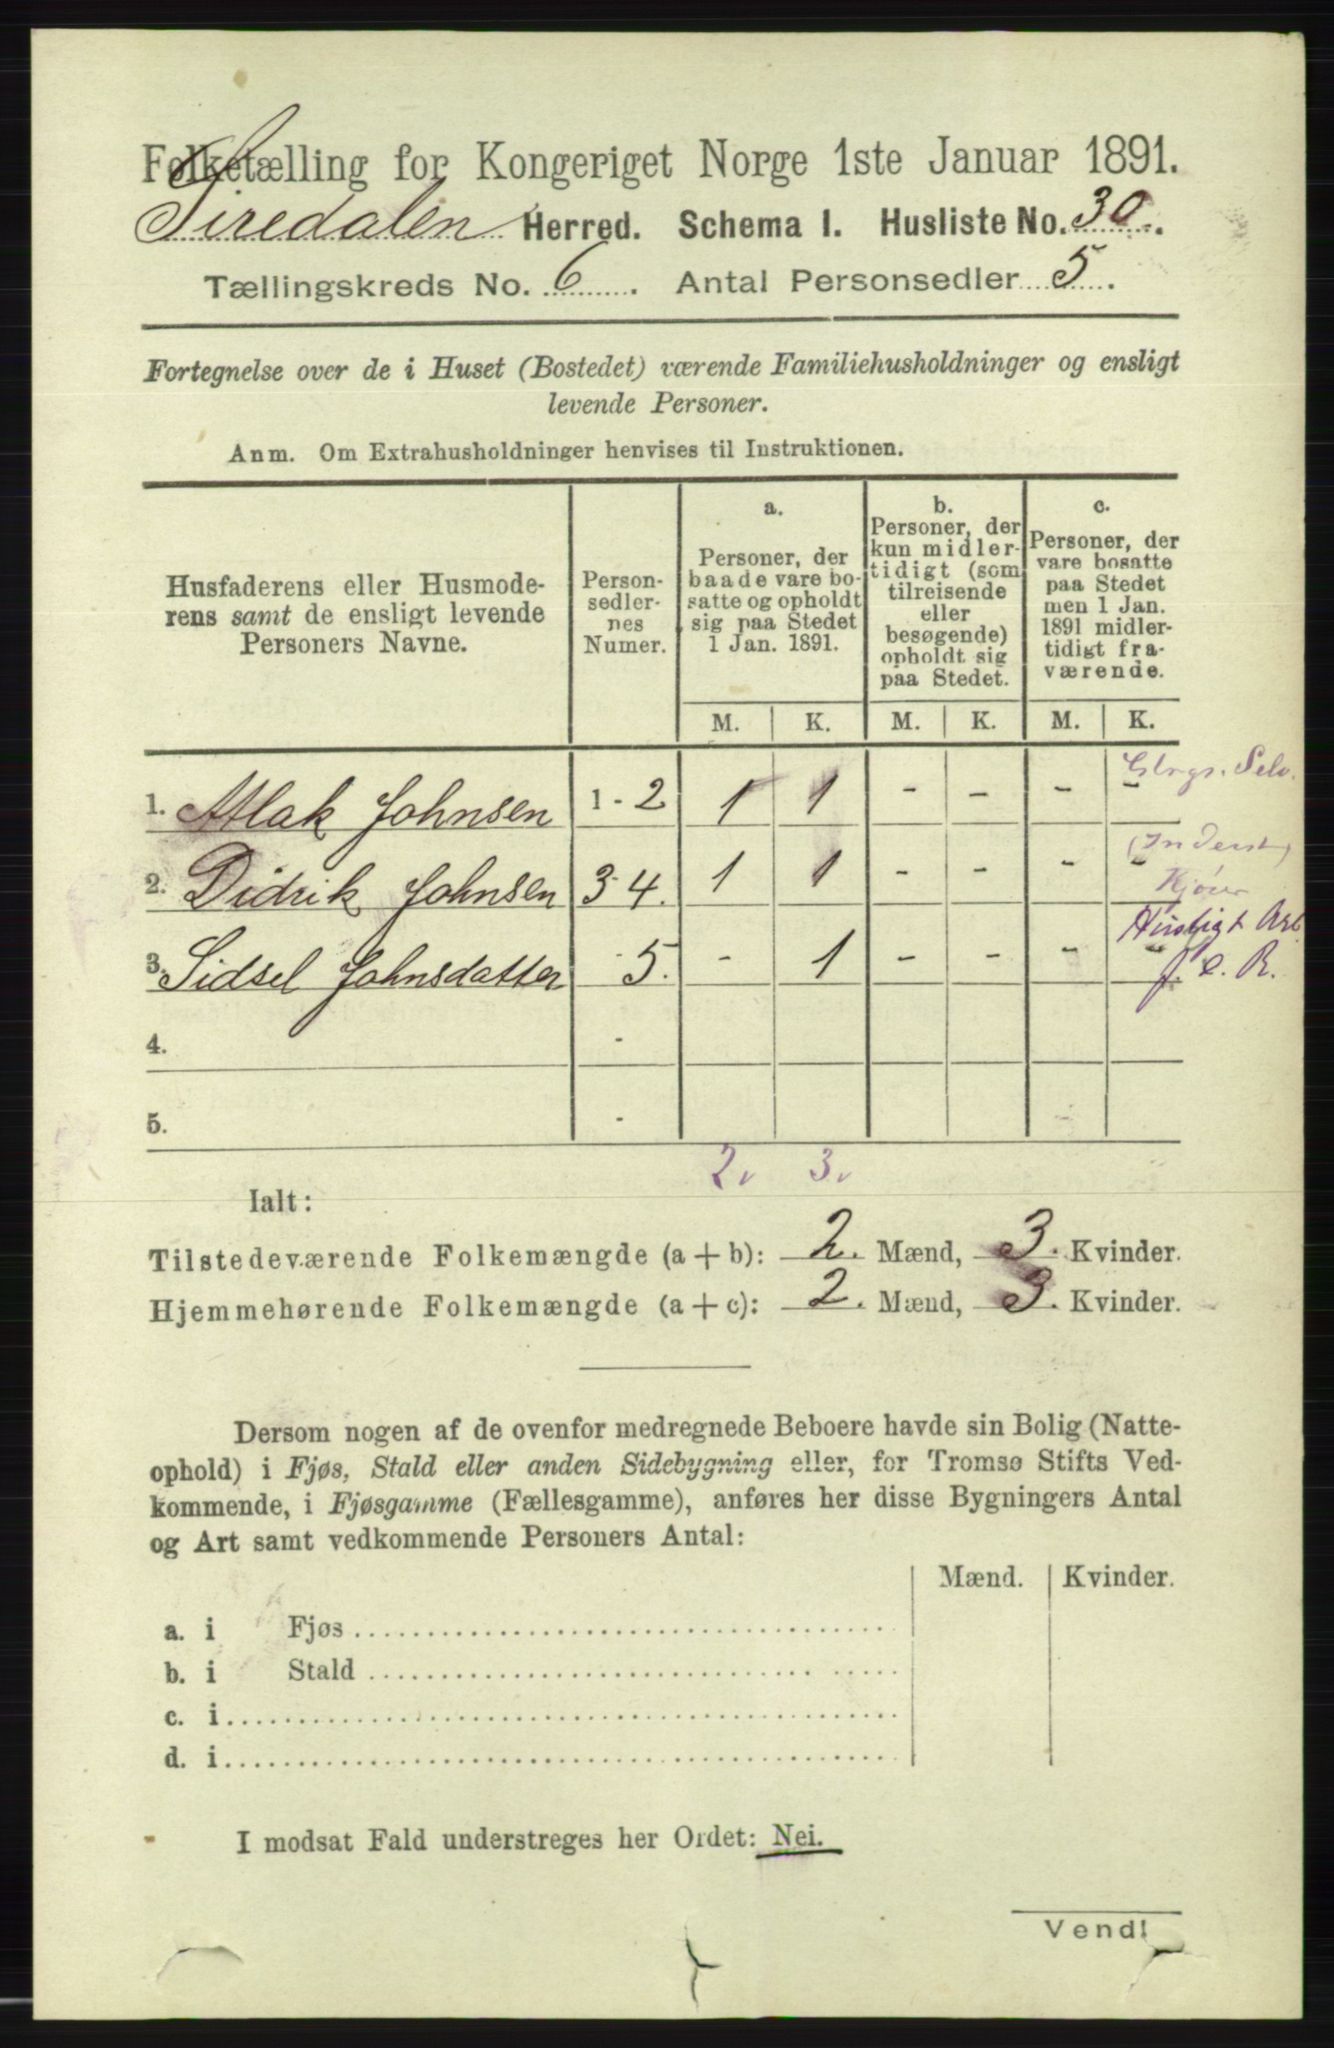 Folketælling for Kongeriget Norge 1ste Januar 1891.
Siredalen Herred. Schema I. Husliste No. 30.
Tællingskreds No. 6. Antal Personsedler 5.
Fortegnelse over de i Huset (Bostedet) værende Familiehusholdninger og ensligt
levende Personer.
Anm. Om Extrahusholdninger henvises til Instruktionen.
Husfaderens eller Husmode-
rens samt de ensligt levende
Personers Navne.
Person-
sedler-
nes
Numer.
a.
Personer, der
baade vare bo-
satte og opholdt
sig paa Stedet
1 Jan. 1891.
b.
Personer, der
kun midler-
tidigt (som
tilreisende
eller
besøgende)
opholdt sig
paa Stedet.
c.
Personer, der
vare bosatte
paa Stedet
men 1 Jan.
1891 midler-
tidigt fra-
værende.
M. K. M. K. M. K.
1. Atlak Johnsen 1 - 2 1 1 - - - - Selv.
2. Didrik Johnsen 3-4. 1 1 - - - - (Inderst)
3. Sidsel Johnsdatter - 5. - 1 - - - - Husligt Arb
f. C. R.
4. -
5. -
2. 3.
Ialt:
Tilstedeværende Folkemængde (a + b): 2. Mænd, 3. Kvinder.
Hjemmehørende Folkemængde (a + c): 2. Mænd, 3. Kvinder.
Dersom nogen af de ovenfor medregnede Beboere havde sin Bolig (Natte-
ophold) i Fjøs, Stald eller anden Sidebygning eller, for Tromsø Stifts Ved-
kommende, i Fjøsgamme (Fællesgamme), anføres her disse Bygningers Antal
og Art samt vedkommende Personers Antal:
Mænd. Kvinder.
a. i Fjøs
b. i Stald
c. i
d. i
I modsat Fald understreges her Ordet: Nei.
Vend!